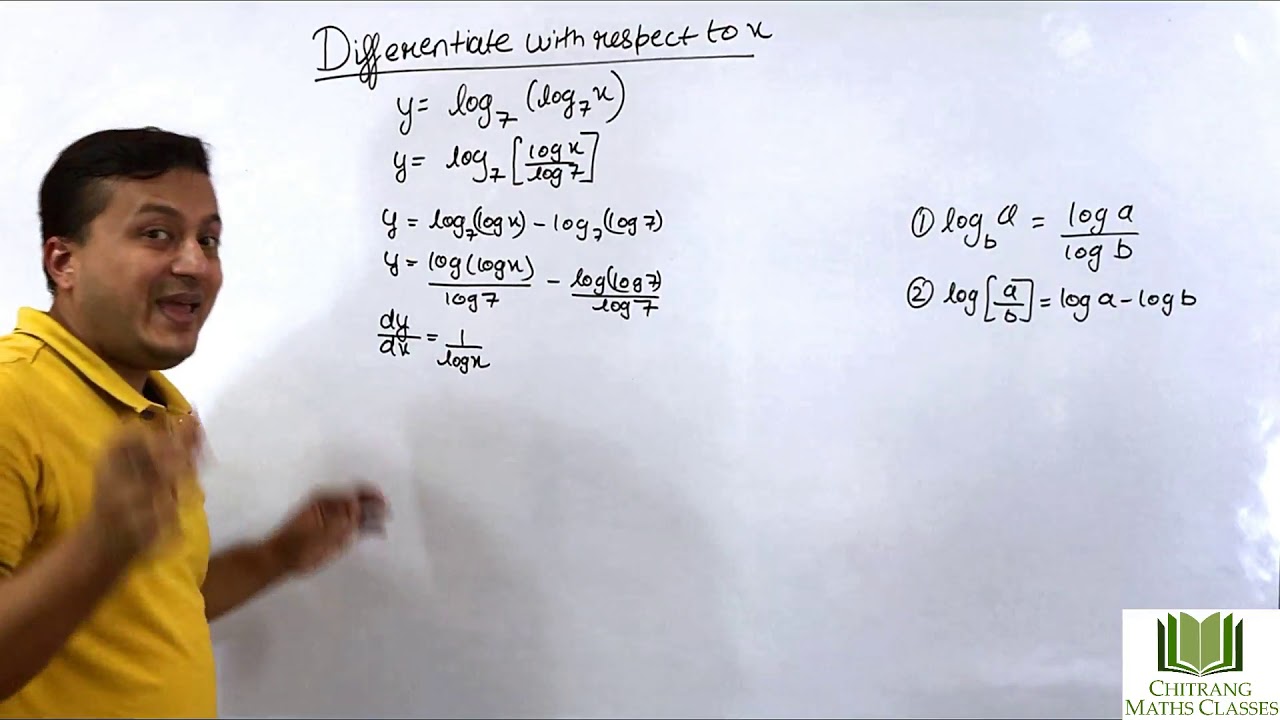 Differentiate with respect to x
y = log₇ (log₇x)
y = log₇ [log x / log 7]
y = log₇(log x) − log₇(log 7)
y = log(log x) / log 7 − log(log 7) / log 7
dy/dx = 1 / log x
① log_b a = log a / log b
② log [a/b] = log a − log b
CHITRANG
MATHS CLASSES